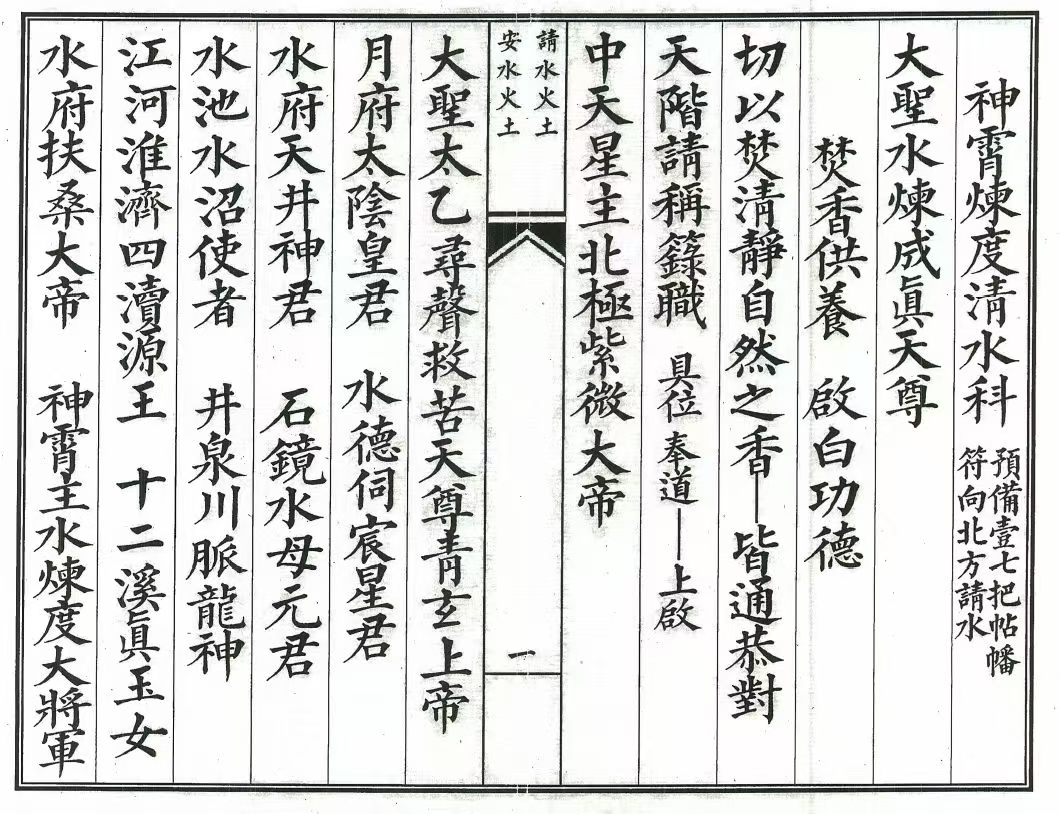 神霄煉度清水科 預備壹七把帖幡
符向北方請水
大聖水煉成眞天尊
焚香供養 啟白功德
切以焚清靜自然之香—皆通恭對
天階請稱籙職 具位 奉道—上啟
中天星主北極紫微大帝
請水火土
安水火土
一
大聖太乙尋聲救苦天尊青玄上帝
月府太陰皇君 水德伺宸星君
水府天井神君 石鏡水母元君
水池水沼使者 井泉川脈龍神
江河淮濟四瀆源王 十二溪眞玉女
水府扶桑大帝 神霄主水煉度大將軍